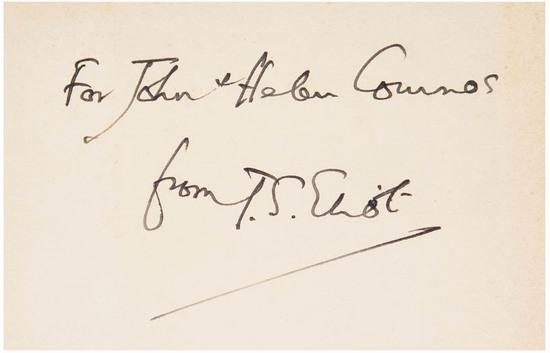 For John + Helen Cournos
from T.S. Eliot